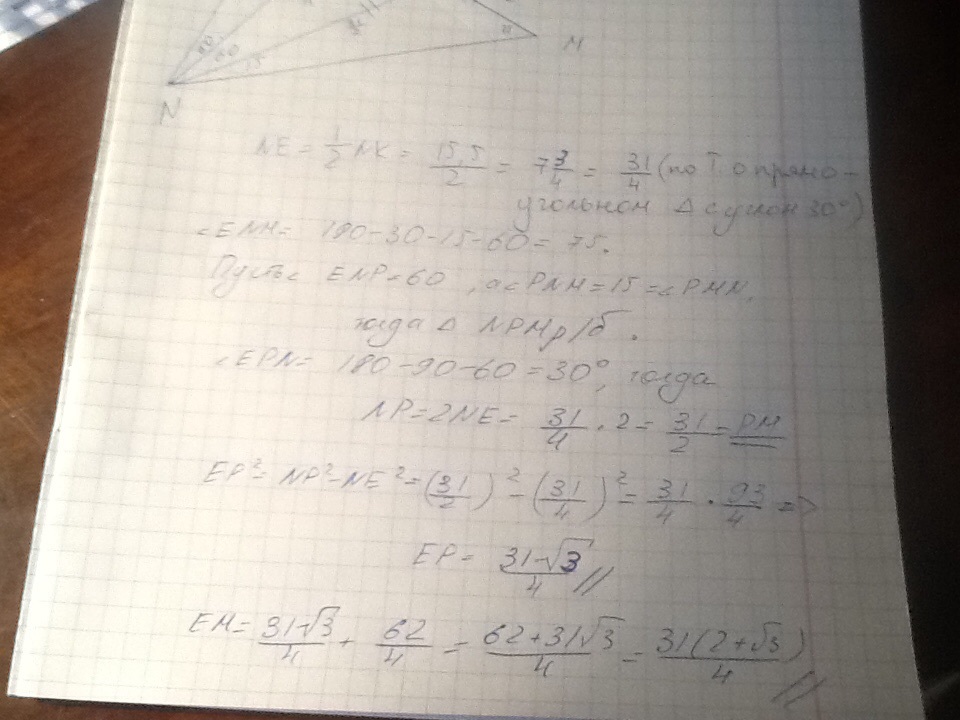 N
M
NE = 1/2 NK = 15,5/2 = 7 3/4 = 31/4 (по Т. о прямо-
угольном Δ с углом 30°)
∠ENM = 180-30-15-60 = 75.
Пусть ∠ENP=60, а ∠PNM=15=∠PMN,
тогда Δ NPM р/б.
∠EPN = 180-90-60=30°, тогда
NP=2NE= 31/4 · 2 = 31/2 = PM
EP² = NP²-NE² = (31/2)² - (31/4)² = 31/4 · 93/4 =>
EP = 31√3/4 //
EM = 31√3/4 + 62/4 = 62+31√3/4 = 31(2+√3)/4 //